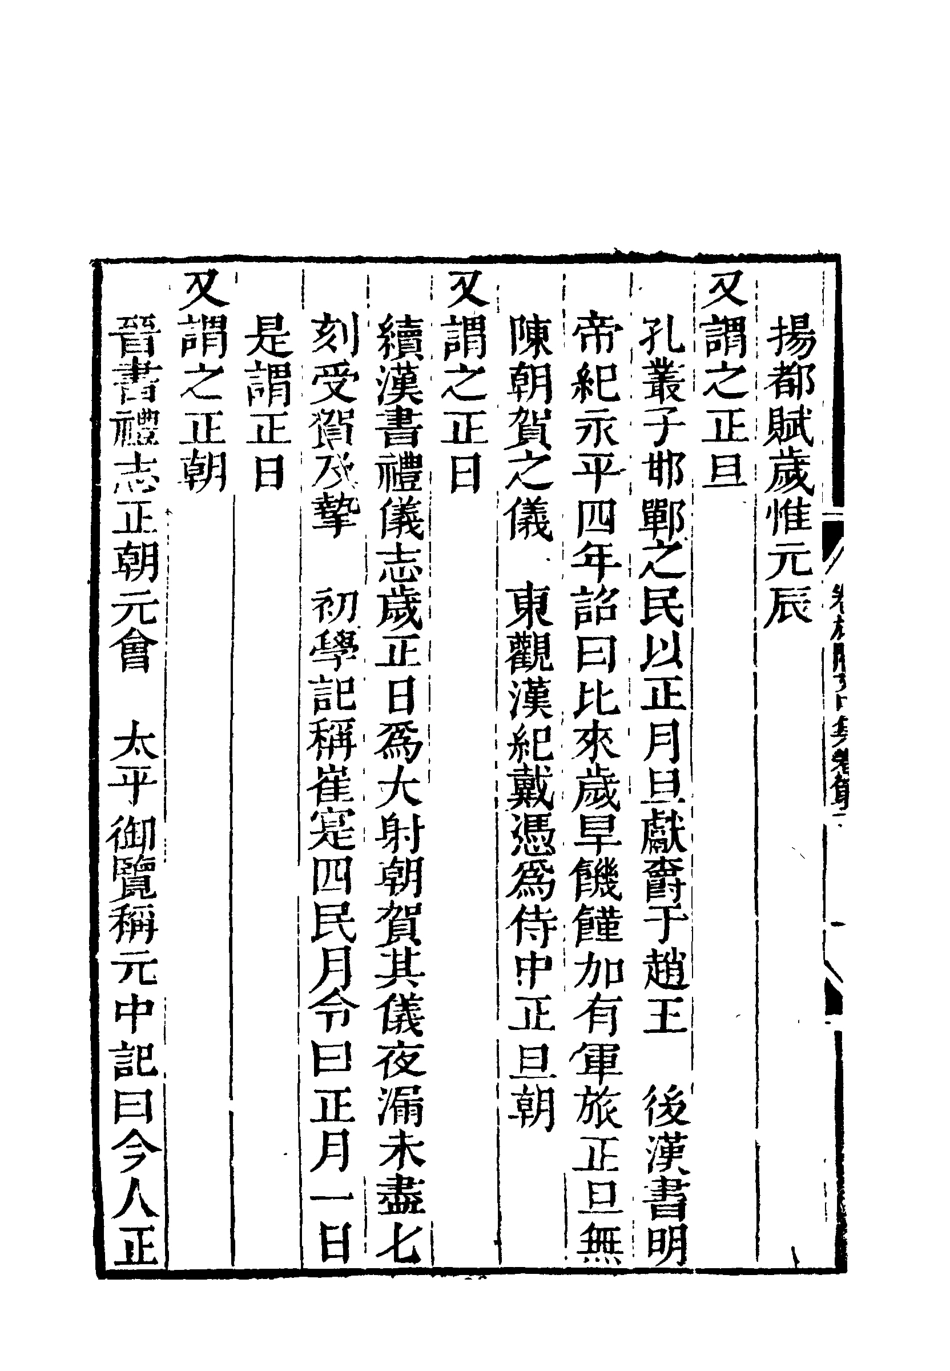 揚都賦歲惟元辰
又謂之正旦
孔叢子邯鄲之民以正月旦獻爵于趙王　後漢書明
帝紀永平四年詔曰比來歲旱饑饉加有軍旅正旦無
陳朝賀之儀　東觀漢紀戴憑爲侍中正旦朝
又謂之正日
續漢書禮儀志歲正日爲大射朝賀其儀夜漏未盡七
刻受賀及摯　初學記稱崔寔四民月令曰正月一日
是謂正日
又謂之正朝
晉書禮志正朝元會　太平御覽稱元中記曰今人正